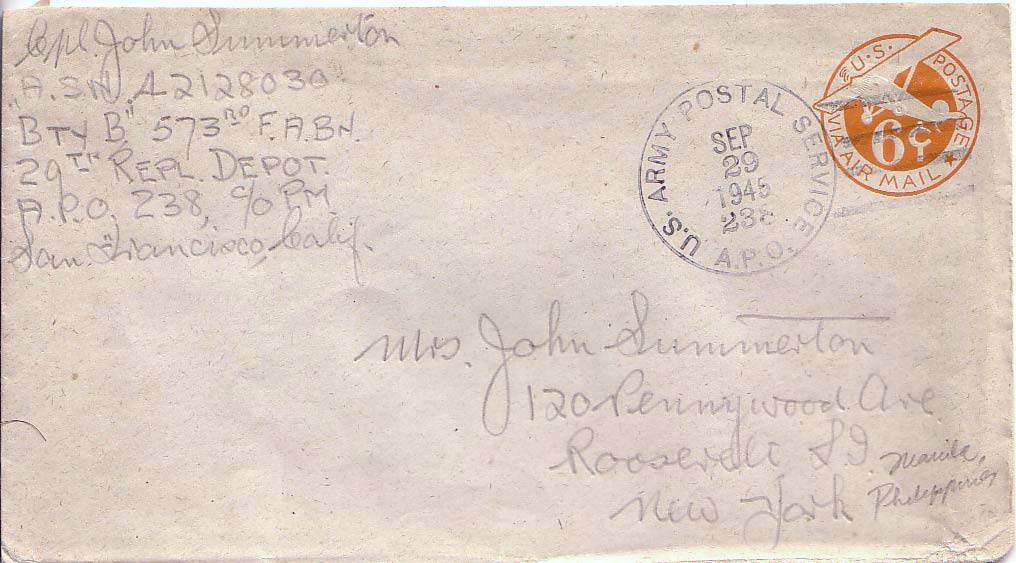 Cpl. John Summerton
A.S.N. 42128030
BTY "B" 573RD F.A.BN.
29TH REPL. DEPOT.
A.P.O. 238, c/o PM
San Francisco, Calif.
U.S. POSTAGE
6¢
VIA AIR MAIL
U.S. ARMY POSTAL SERVICE
SEP
29
1945
238
A.P.O.
Mrs. John Summerton
120 Pennywood Ave
Roosevelt L I
New York
Manila,
Philippines